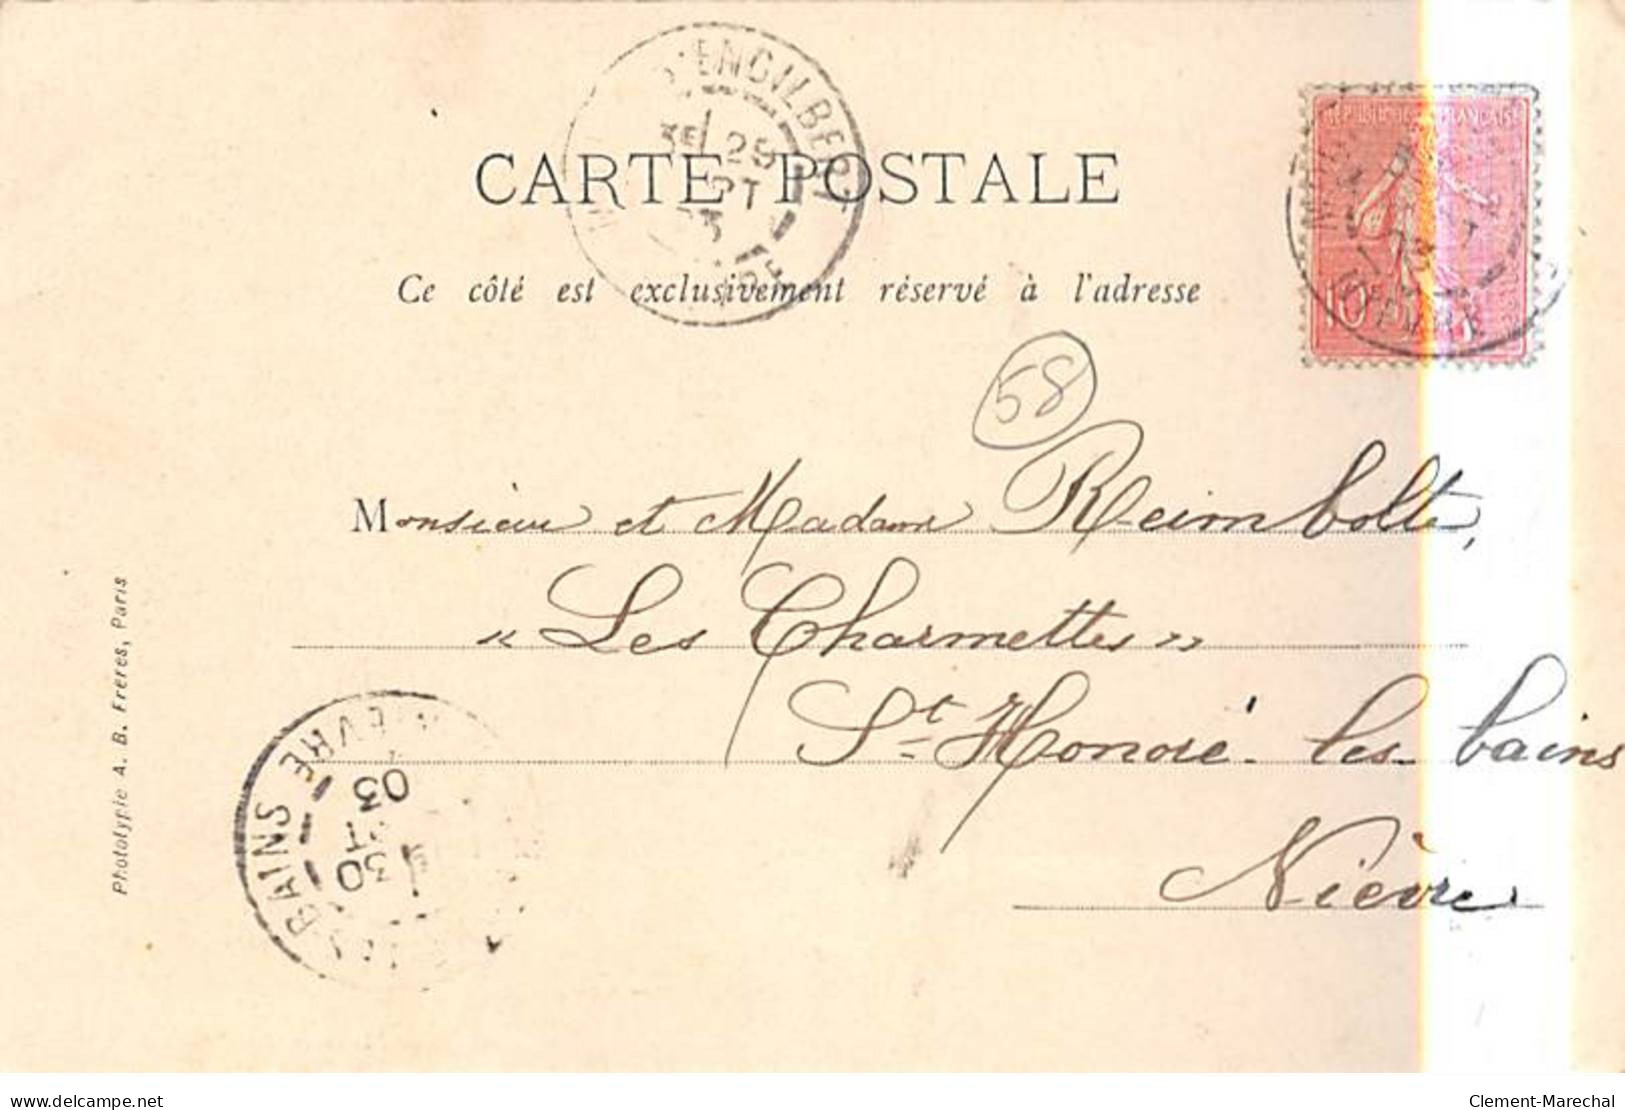 D'ENGILBERT
3E 29
PT
03
CARTE POSTALE
RÉPUBLIQUE FRANÇAISE
10
NIÈVRE
Ce côté est exclusivement réservé à l'adresse
58
Monsieur et Madame Reimbolte,
« Les Charmettes »
St Honoré-les-bains
Nièvre
Phototypie A. B. Frères, Paris
BAINS NIÈVRE
30
03
delcampe.net
Clement-Marechal